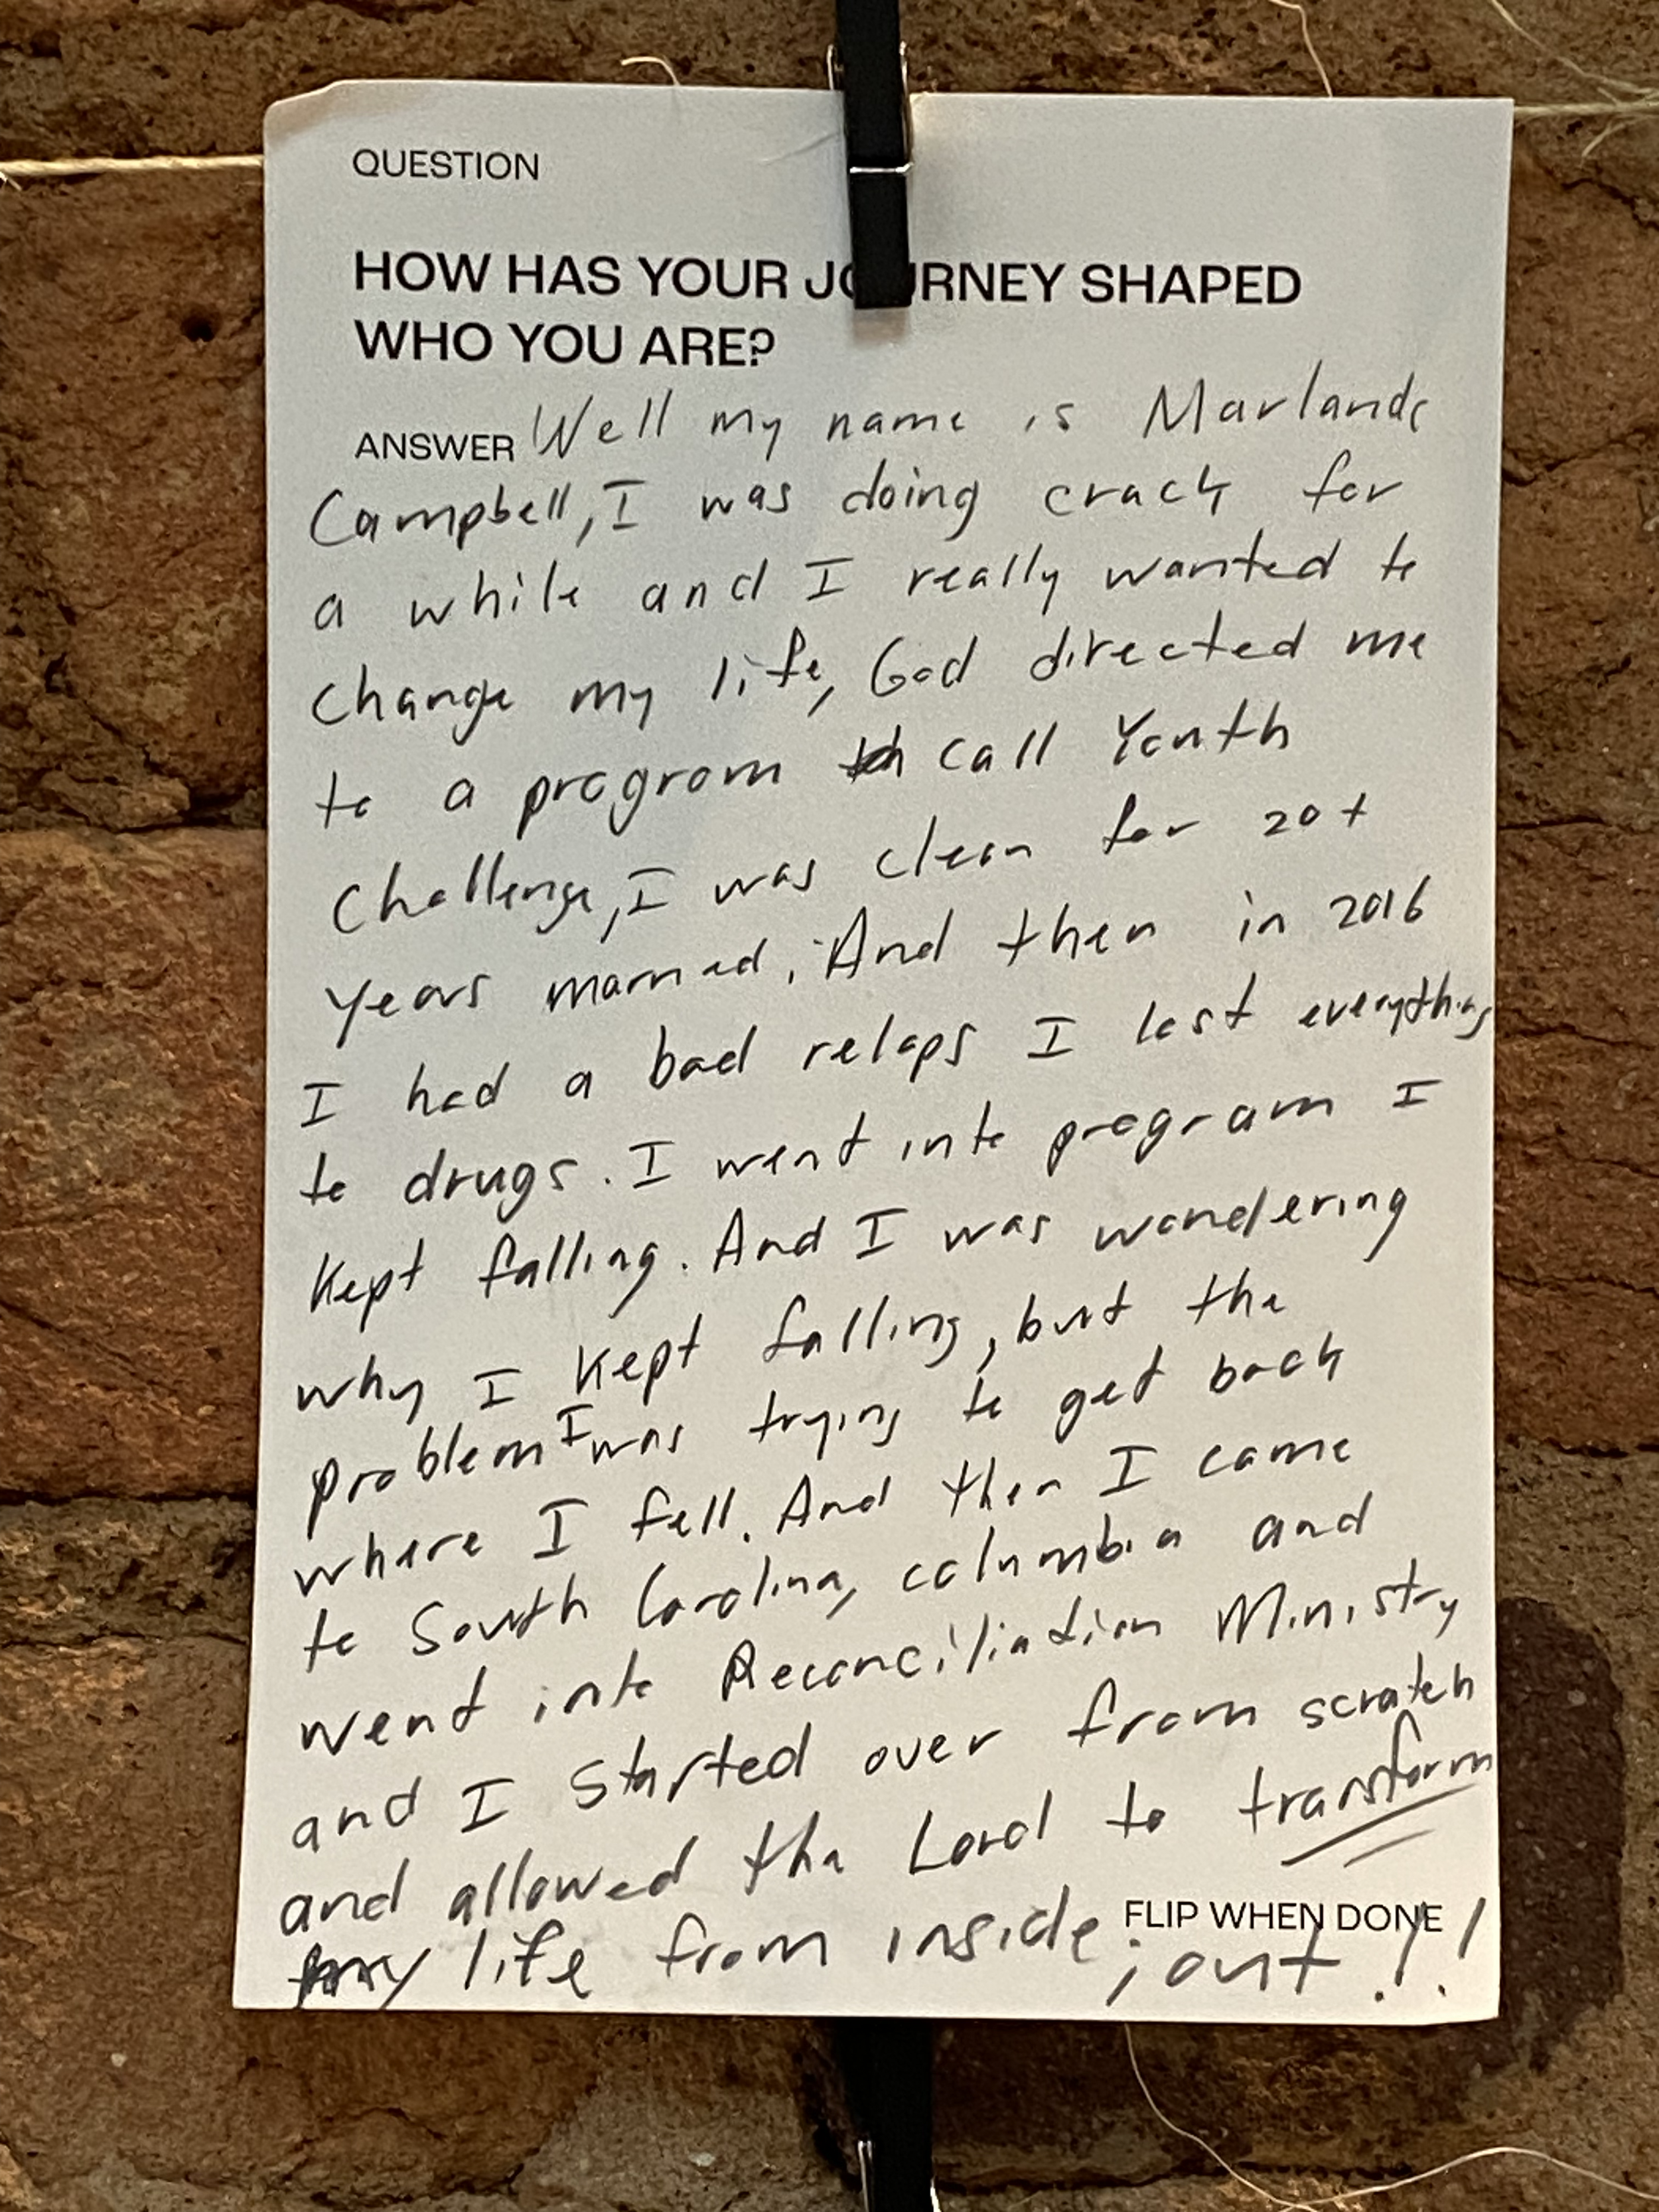 QUESTION
HOW HAS YOUR JOURNEY SHAPED
WHO YOU ARE?
ANSWER Well my name is Marlande
Campbell, I was doing crack for
a while and I really wanted to
change my life, God directed me
to a program call Youth
Challenge, I was clean for 20+
years married. And then in 2016
I had a bad relaps I lost everything
to drugs. I went into program I
kept falling. And I was wondering
why I kept falling, but the
problem I was trying to get back
where I fell. And then I came
to South Carolina, columbia and
went into Reconciliation Ministry
and I started over from scratch
and allowed the Lord to transform
FLIP WHEN DONE
my life from inside ; out !!